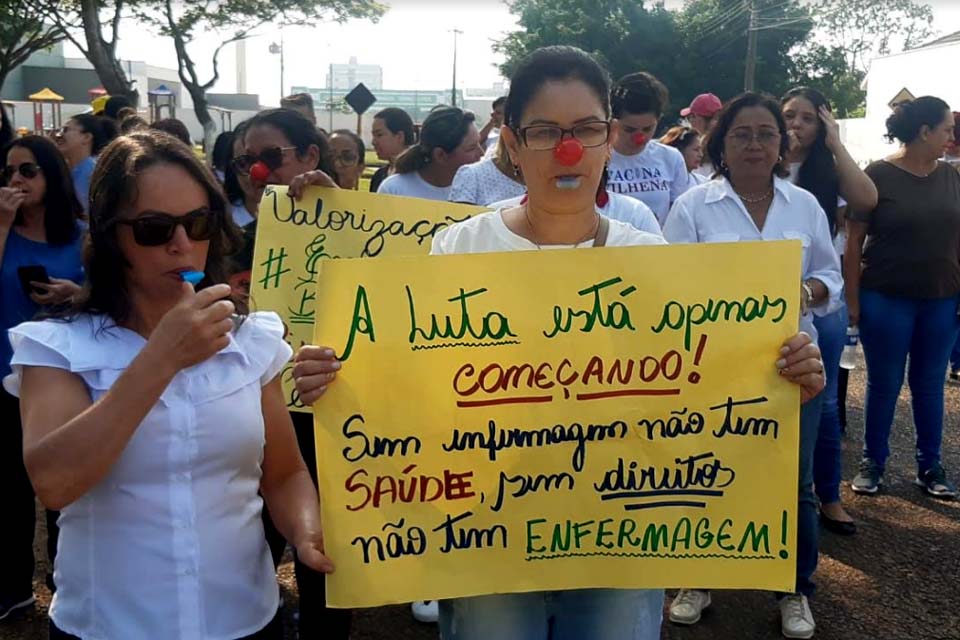 Valorização
#
A Luta está apenas
COMEÇANDO!
Sem enfermagem não tem
SAÚDE, sem direitos
não tem ENFERMAGEM!